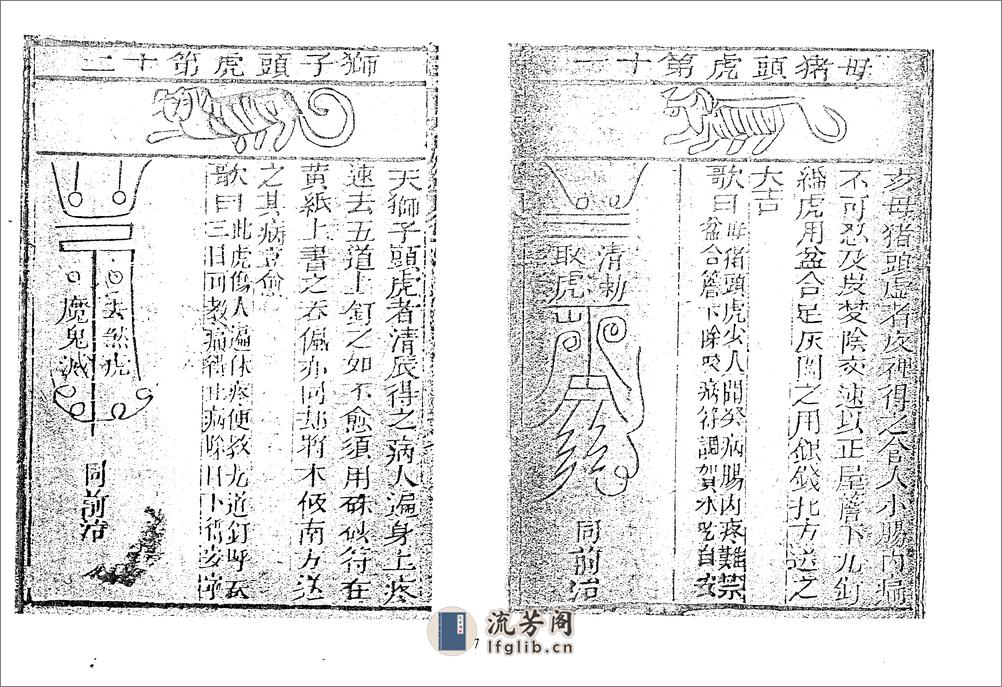 母猪頭虎第十一
亥母猪頭虎者夜裡得之令人小腸內痛
不可忍及炭熨陰交速以正屋簷下九釘
繩虎用盆合足灰圍之用銀錢北方送之
大吉
歌曰母猪頭虎少人聞發病腸內疼難禁
盆合簷下除吸病符調賀水吃自安
清勅
取虎
同前治
獅子頭虎第十二
天獅子頭虎者清辰得之病人遍身上疼
速去五道上釘之如不愈須用硃似符在
黃紙上書之吞佩亦同却將木似南方送
之其病立愈
歌曰此虎傷人遍休疼便教九道釘呼云
三日可教病除日下得安寧
天煞虎
魔鬼滅
同前治
7
流芳阁
lfglib.cn